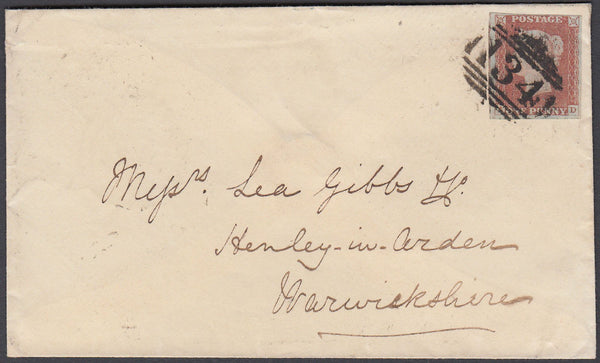 POSTAGE
134
ONE PENNY D
Messrs. Lea Gibbs &c.
Henley-in-Arden
Warwickshire